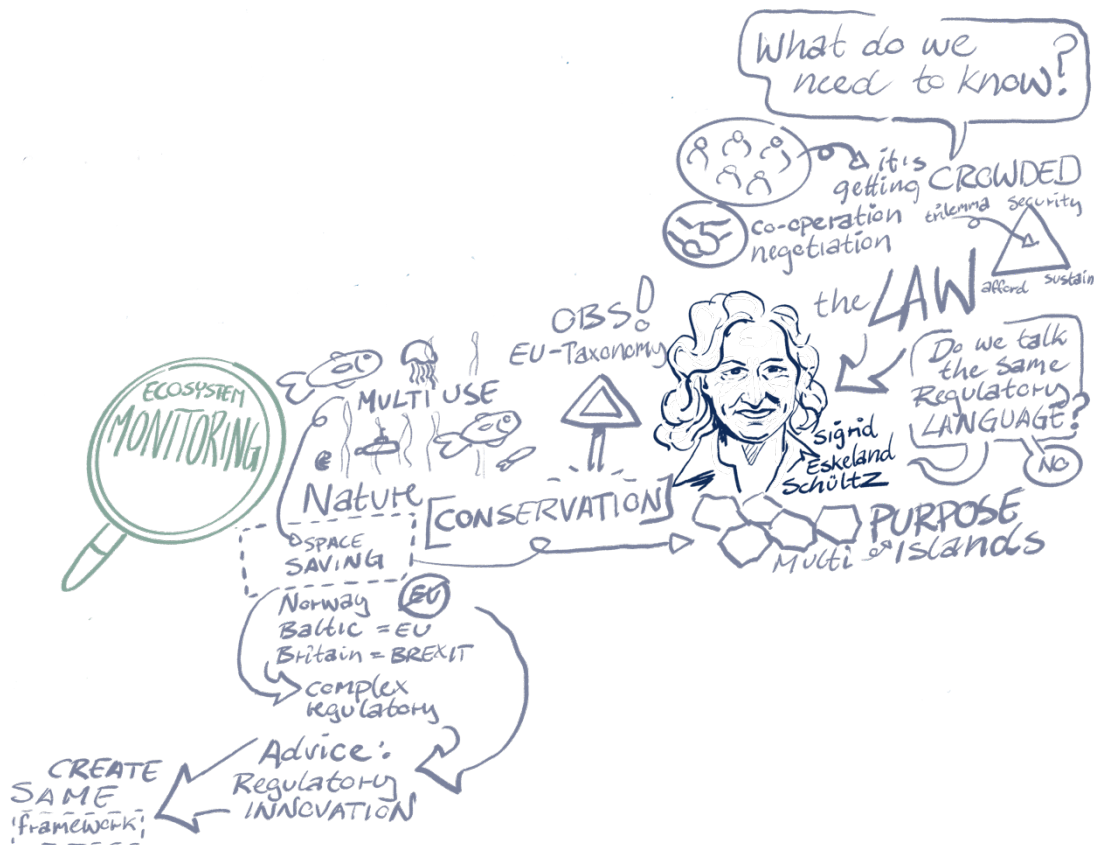 What do we
need to know?
it's
getting CROWDED
co-operation
negotiation
trilemma
security
afford
sustain
the LAW
Do we talk
the same
Regulatory
LANGUAGE?
NO
OBS!
EU-Taxonomy
Sigrid
Eskeland
Schültz
ECOSYSTEM
MONITORING
MULTI USE
Nature
[CONSERVATION]
SPACE
SAVING
PURPOSE
Multi
Islands
Norway EU
Baltic = EU
Britain = BREXIT
complex
regulatory
Advice:
Regulatory
INNOVATION
CREATE
SAME
framework